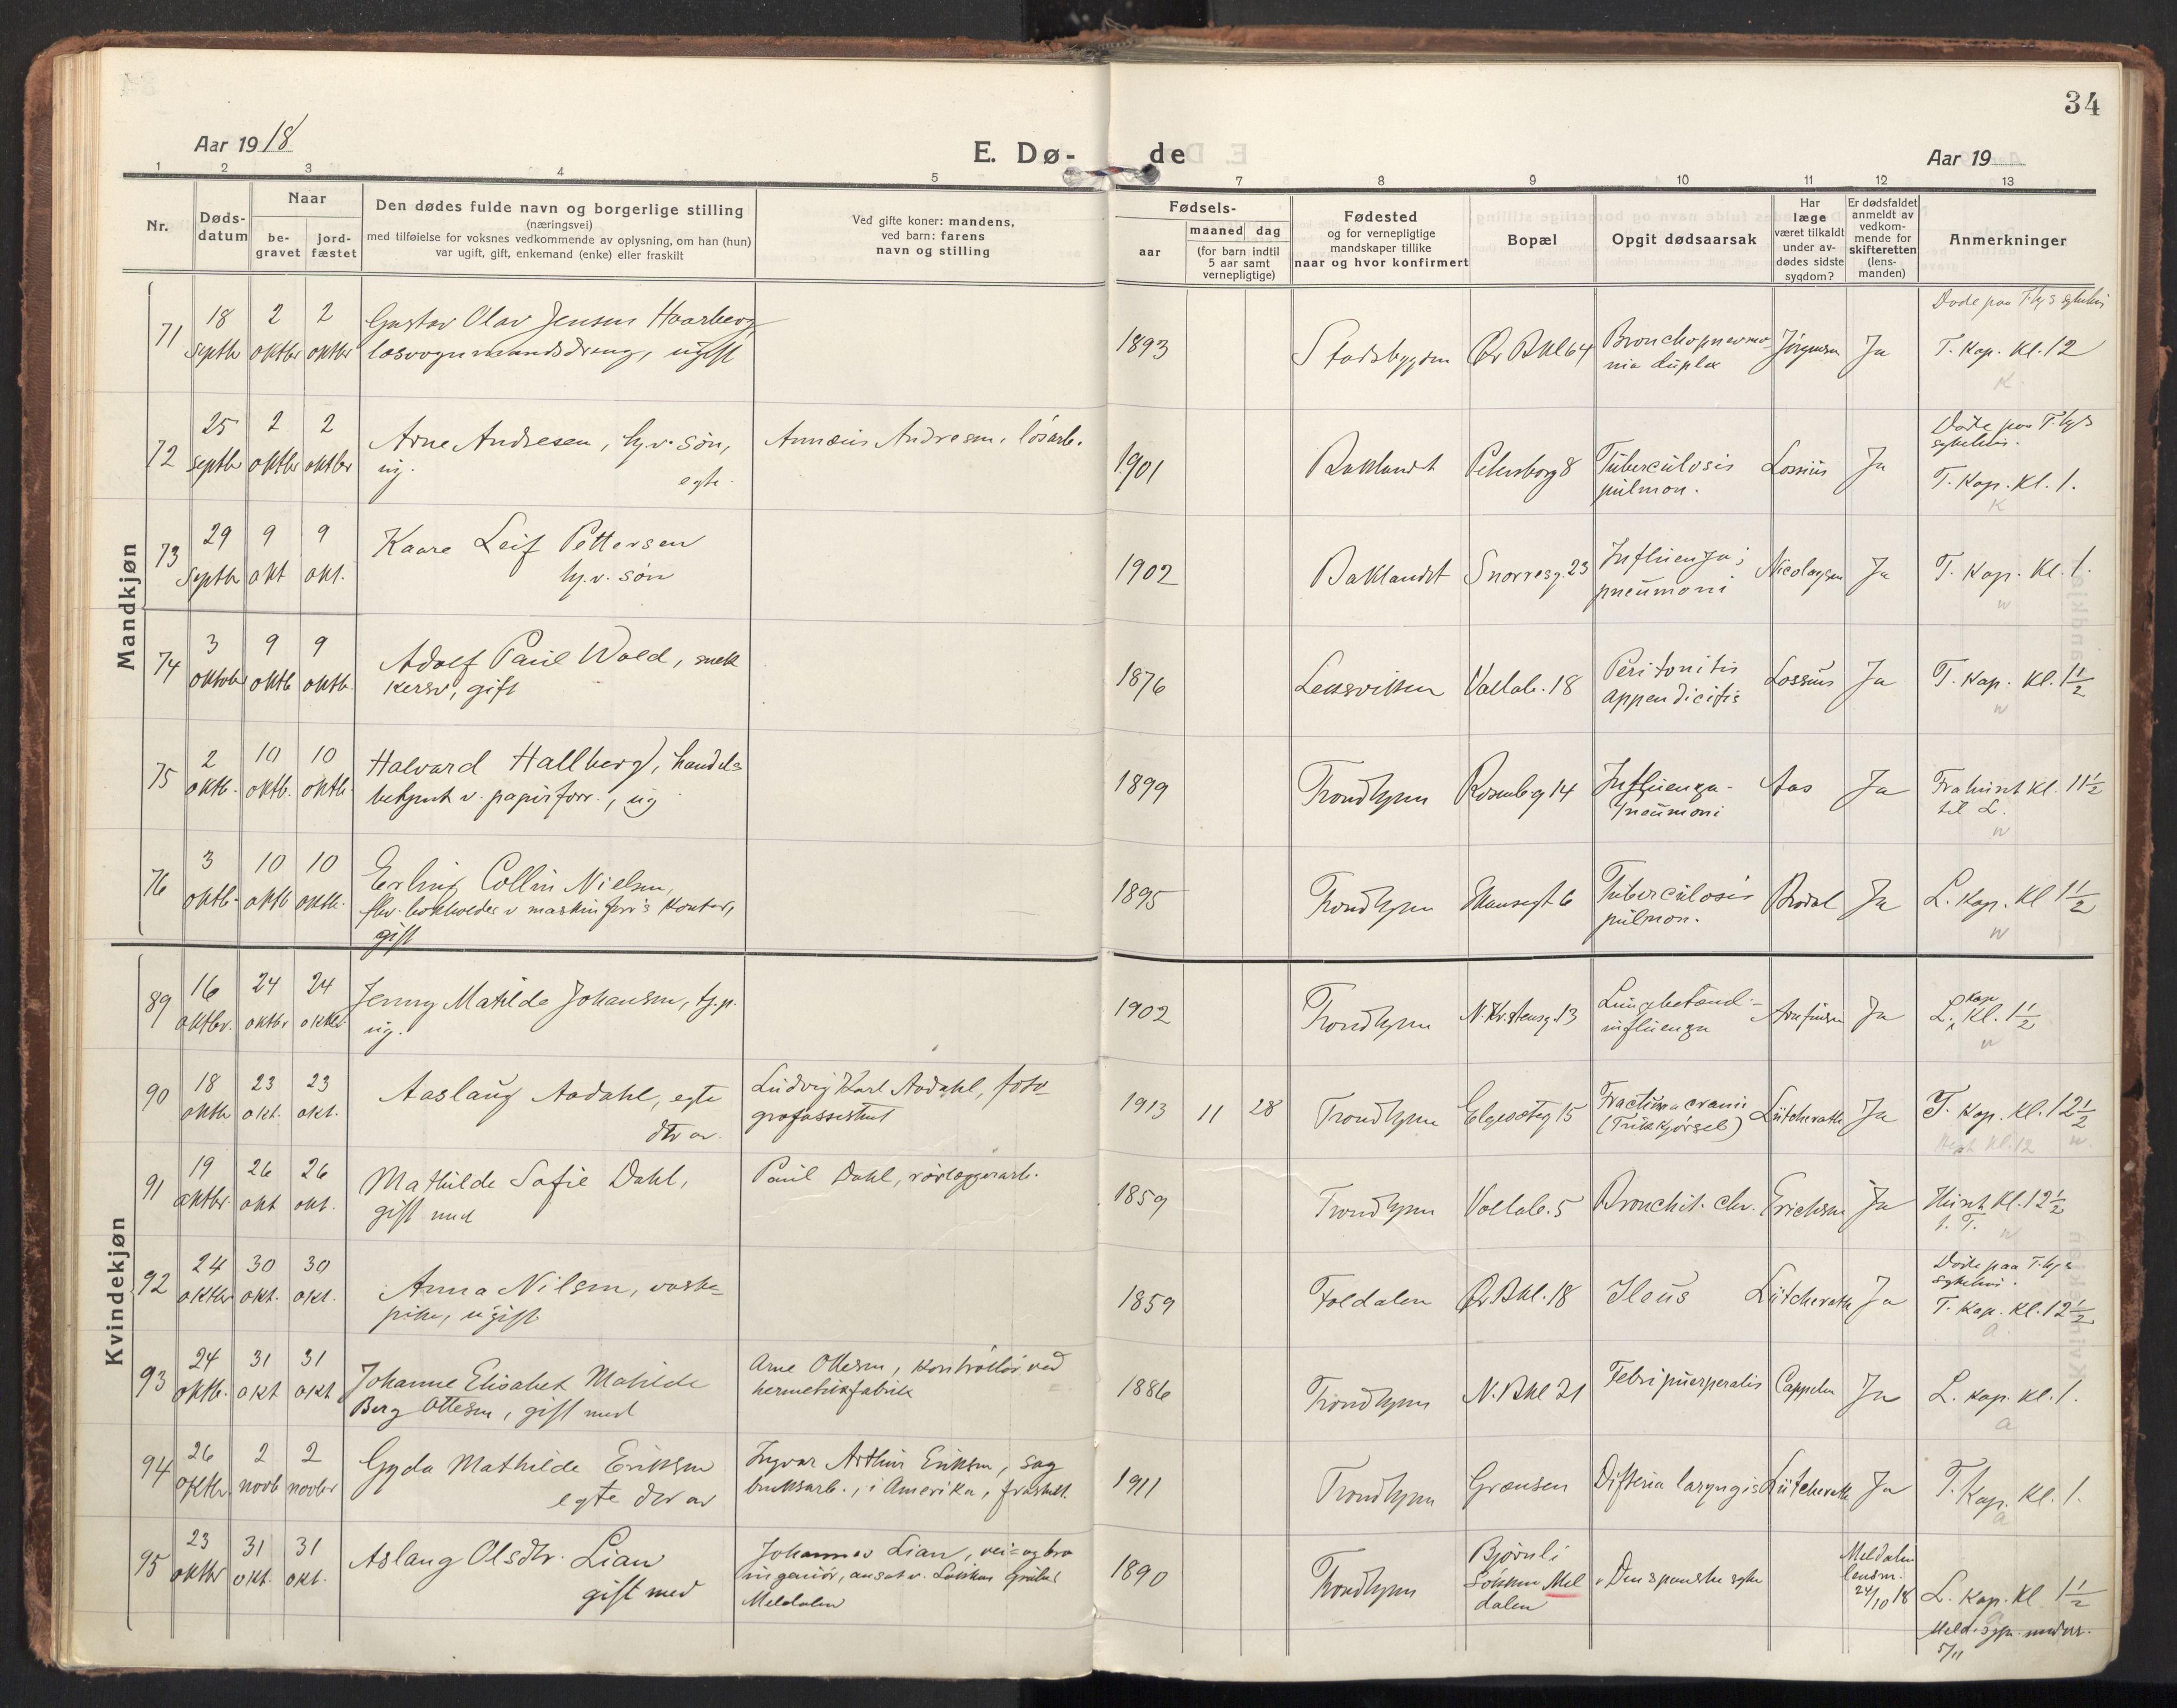 34
Aar 1918
E. Dø-
de
Aar 19
1 2 3 4 5 7 8 9 10 11 12 13
Nr.
Døds-
datum
Naar
be-
gravet
jord-
fæstet
Den dødes fulde navn og borgerlige stilling
(næringsvei)
med tilføielse for voksnes vedkommende av oplysning, om han (hun)
var ugift, gift, enkemand (enke) eller fraskilt
Ved gifte koner: mandens,
ved barn: farens
navn og stilling
Fødsels-
aar
maaned dag
(for barn indtil
5 aar samt
vernepligtige)
Fødested
og for vernepligtige
mandskaper tillike
naar og hvor konfirmert
Bopæl
Opgit dødsaarsak
Har
læge
været tilkaldt
under av-
dødes sidste
sygdom?
Er dødsfaldet
anmeldt av
vedkom-
mende for
skifteretten
(lens-
manden)
Anmerkninger
Mandkjøn
71 18 septbr 2 oktbr 2 oktbr
Gustav Olav Jensen Haarberg
løsvognmandsdreng, ugift
1893 Stadsbygden Ør Bkl 64
Bronchopneumo-
nia duplex
Jørgensen Ja
Døde paa T.hjs sykehus
T. Kap. Kl. 12
72 25 septbr 2 oktbr 2 oktbr
Arne Andresen, hj.v. søn,
ug. egte.
Annæus Andresen, løsarb.
1901 Baklandet Petersborg 8
Tuberculosis
pulmon.
Lossius Ja
Døde paa T.hjs
sykehus.
T. Kap. Kl. 1.
73 29 septbr 9 okt 9 okt.
Kaare Leif Pettersen
hj.v. søn
1902 Baklandet Snorresg. 23
Influenza;
pneumoni
Nicolaysen Ja
T. Kap. Kl. 1.
74 3 oktober 9 oktb 9 oktb.
Adolf Paul Wold, snek
kersv, gift
1876 Leksviken Vollab. 18
Peritonitis
appendicitis
Lossius Ja
T. Kap. Kl. 1½
75 2 oktb. 10 oktb. 10 oktb.
Halvard Hallberg, handels
betjent v. papirforr., ug
1899 Trondhjem Rosenbg 14
Influenza-
pneumoni
Aas Ja
Fra huset kl. 11½
til L.
76 3 oktb. 10 oktb 10 oktb.
Erling Collin Nielsen,
flv. bokholder v maskinforr's kontor,
gift
1895 Trondhjem
Tuberculosis
pulmon.
Brodal Ja
L. Kap. Kl 1½
Kvindekjøn
89 16 oktbr. 24 oktbr 24 oktbr.
Jenny Matilde Johansen, tj.p.
ug.
1902 Trondhjem
Lungebetænd.-
influenza
Arnfinsen Ja
L. kap Kl. 1½
90 18 oktbr 23 okt. 23 okt.
Aaslaug Aadahl, egte
dtr av
Ludvig Karl Aadahl, foto-
grafassistent
1913 11 28 Trondhjem Elgesetg 15
Fractura cranii
(Trikkjørsel)
Lütcherath Ja
T. Kap. Kl. 12½
91 19 oktbr. 26 okt 26 okt.
Mathilde Sofie Dahl,
gift med
Paul Dahl, rørlæggerarb.
1859 Trondhjem Vollab. 5
Bronchit. chr. Erichsen Ja
Huset kl. 12½
t. T.
92 24 oktbr 30 okt. 30 okt.
Anna Nilsen, vaske-
pike, ugift
1859 Foldalen Ør Bkl. 18
Ileus Lütcherath Ja
Døde paa T.hjs
sykehus.
T. Kap. Kl. 12½
93 24 oktb. 31 okt 31 okt
Johanne Elisabet Matilde
Berg Ottesen, gift med
Arne Ottesen, kontrollør ved
hermetikfabrik
1886 Trondhjem N. Bkl 21
Febri puerperalis Cappelen Ja
L. Kap. Kl. 1.
94 26 oktbr. 2 novb 2 novbr
Gyda Mathilde Eriksen
egte dtr av
Ingvar Arthur Eriksen, sag
bruksarb., i Amerika, fraskilt.
1911 Trondhjem Grænsen
Difteria laryngis Lütcherath Ja
T. Kap. Kl. 1.
95 23 oktbr 31 okt. 31 okt.
Aslaug Olsdtr. Lian
gift med
Johannes Lian, vei- og bro
ingeniør, ansat v. Løkken gruber
Meldalen
1890 Trondhjem
Bjørnli
Løkken Mel
dalen
Den spanske syke
Meldalen
lensm.
24/10 18
L. Kap. Kl 1½
5/11